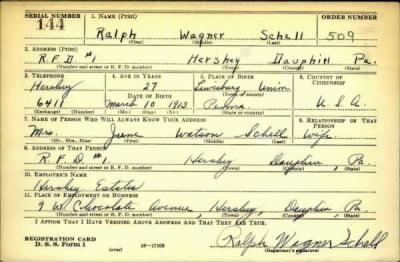 SERIAL NUMBER 1. NAME (Print) ORDER NUMBER
144 Ralph Wagner Schell 509
(First) (Middle) (Last)
2. ADDRESS (Print)
R.F.D. #1 Hershey Dauphin Pa.
(Number and street or R. F. D. number) (Town) (County) (State)
3. TELEPHONE 4. AGE IN YEARS 5. PLACE OF BIRTH 6. COUNTRY OF CITIZENSHIP
Hershey 27 Lewisburg Union
DATE OF BIRTH (Town or county)
6411 March 10 1913 Penna. U.S.A.
(Exchange) (Number) (Mo.) (Day) (Yr.) (State or country)
7. NAME OF PERSON WHO WILL ALWAYS KNOW YOUR ADDRESS 8. RELATIONSHIP OF THAT PERSON
Mrs. June Watson Schell Wife
(Mr., Mrs., Miss) (First) (Middle) (Last)
9. ADDRESS OF THAT PERSON
R.F.D. #1. Hershey Dauphin, Pa.
(Number and street or R. F. D. number) (Town) (County) (State)
10. EMPLOYER'S NAME
Hershey Estates
11. PLACE OF EMPLOYMENT OR BUSINESS
9 W. Chocolate Avenue, Hershey, Dauphin, Pa.
(Number and street or R. F. D. number) (Town) (County) (State)
I AFFIRM THAT I HAVE VERIFIED ABOVE ANSWERS AND THAT THEY ARE TRUE.
REGISTRATION CARD
D. S. S. Form 1 (over) 16—17105 Ralph Wagner Schell
(Registrant's signature)